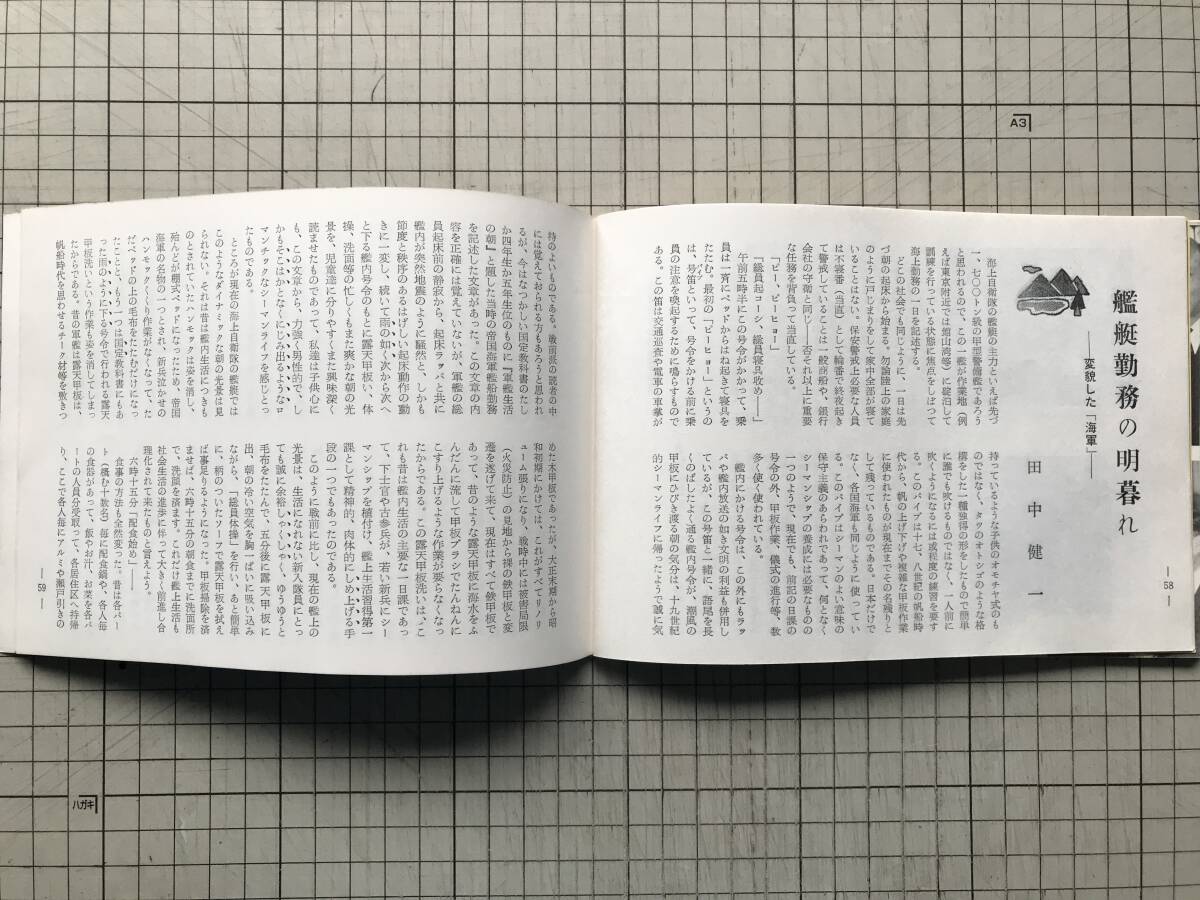 艦艇勤務の明暮れ
――変貌した「海軍」――
田中健一
海上自衛隊の艦艇の主力といえば先づ
一、七〇〇トン級の甲型警備艦であろう
と思われるので、この一艦が作業地（例
えば東京附近では館山湾等）に碇泊して
訓練を行っている状態に焦点をしぼって
海上勤務の一日を記述する。
どこの社会でも同じように、一日は先
づ朝の起床から始まる。勿論陸上の家庭
のように戸じまりをして家中全部が寝て
いることはない。保安警戒上必要な人員
は不寝番（当直）として輪番で終夜起き
て警戒していることは一般商船や、銀行
会社の守衛と同じ――否それ以上に重要
な任務を背負って当直している。
「ピー、ピーヒョー」
「総員起コーシ、総員寝具収め――」
午前五時半にこの号令がかかって、乗
員は一斉にベッドからはね起きて寝具を
たたむ。最初の「ピーヒョー」というの
は、号笛といって、号令をかける前に乗
員の注意を喚起するために鳴らすもので
ある。この笛は交通巡査や電車の車掌が
持っているような子供のオモチャ式のも
のではなく、タツのオトシゴのような格
構をした一種独得の形をしたもので簡単
に誰でも吹けるものではなく、一人前に
吹くようになるには或程度の練習を要す
る。このパイプは十七、八世紀の帆船時
代から、帆の上げ下げや複雑な甲板作業
に使われたものが現在までその名残りと
して残っているものである。日本だけで
なく、各国海軍も同じように使ってい
る。このパイプはシーマンのよい意味の
保守主義のあらわれであって、何となく
シーマンシップの養成には必要なものの
一つのようで、現在でも、前記の日課の
号令の外、甲板作業、儀式の進行等、数
多く使く使われている。
艦内にかける号令は、この外にもラッ
パや艦内放送の如き文明の利益も併用し
ているが、この号笛と一緒に、語尾を長
くのばしたよく通る艦内号令が、潮風の
甲板にひびき渡る朝の気分は、十九世紀
的シーマンライフに帰ったようで誠に気
―58―
持のよいものである。戦前派の読者の中
には覚えておられる方もあろうと思われ
るが、今はなつかしい国定教科書のたし
か四年生か五年生位のものに『軍艦生活
の朝』と題した当時の帝国海軍艦船勤務
を記述した文章があった。この文章の内
容を正確には覚えていないが、軍艦の総
員起床前の静寂から、起床ラッパと共に
艦内が突然地震のように騒然と、しかも
節度と秩序のあるはげしい起床動作の動
きに一変し、続いて雨の如く次から次へ
と下る艦内号令のもとに露天甲板い、体
操、洗面等の忙しくもまた爽かな朝の光
景を、児童達に分りやすくまた興味深く
読ませたものであって、私達は子供心に
も、この文章から、力強く男性的で、し
かもそこはかとなくにじみ出るようなロ
マンチックなシーマンライフを感じとっ
たものである。
ところが現在の海上自衛隊の艦艇では
このようなダイナミックな朝の光景は見
られない。それは昔は艦内生活につきも
のとされていたハンモックは姿を消し、
殆んどが棚式ベッドになったため、帝国
海軍の名物の一つとされ、新兵泣かせの
ハンモックくくり作業がなくなって、た
だベッドの上の毛布をたたむだけになっ
たことと、もう一つは国定教科書にもあ
った雨のように下る号令で行われる露天
甲板洗いという作業も姿を消してしまっ
たからである。昔の軍艦は露天甲板は、
帆船時代を思わせるチーク材等を敷きつ
めた木甲板であったが、大正末期から昭
和初期にかけては、これがすべてリノリ
ューム張りになり、戦時中には被害局限
（火災防止）の見地から裸の鉄甲板と変
遷を遂げて来て、現在はすべて鉄甲板で
あって、昔のような露天甲板に海水をふ
んだんに流して甲板ブラシでたんねんに
こすり上げるような作業が要らなくなっ
たからである。この露天甲板洗いは、こ
れも昔は艦内生活の主要な一日課であっ
て、下士官や古参兵が、若い新兵にシー
マンシップを植付け、艦上生活習得第一
課として精神的、肉体的にしめ上げる手
段の一つでもあったのである。
このように戦前に比し、現在の艦上の
光景は、生活になれない新入隊員にとっ
ても誠に余裕しゃくしゃく、ゆうゆうと
毛布をたたんで、五分後に露天甲板に
出、朝の冷い空気を胸一ぱいに吸い込み
ながら、「総員体操」を行い、あと簡単
に、柄のついたソーフで露天甲板を拭え
ば事足りるようになった。甲板掃除を済
ませば、六時十五分の朝食までに洗面所
で、洗顔を済ます。これだけ艦上生活も
社会生活の進歩に伴って大きく前進し合
理化されて来たものと言えよう。
六時十五分「配食始め」――
食事の方法も全然変った。昔は各パー
ト（橋む十数名）毎に配食鍋や、各人毎
の食器があって、飯やお汁、お菜を各パ
ートの人員分受取って、各居住区へ持帰
り、ここで各人毎にアルミや瀬戸引きの
―59―
A3
ハガキ